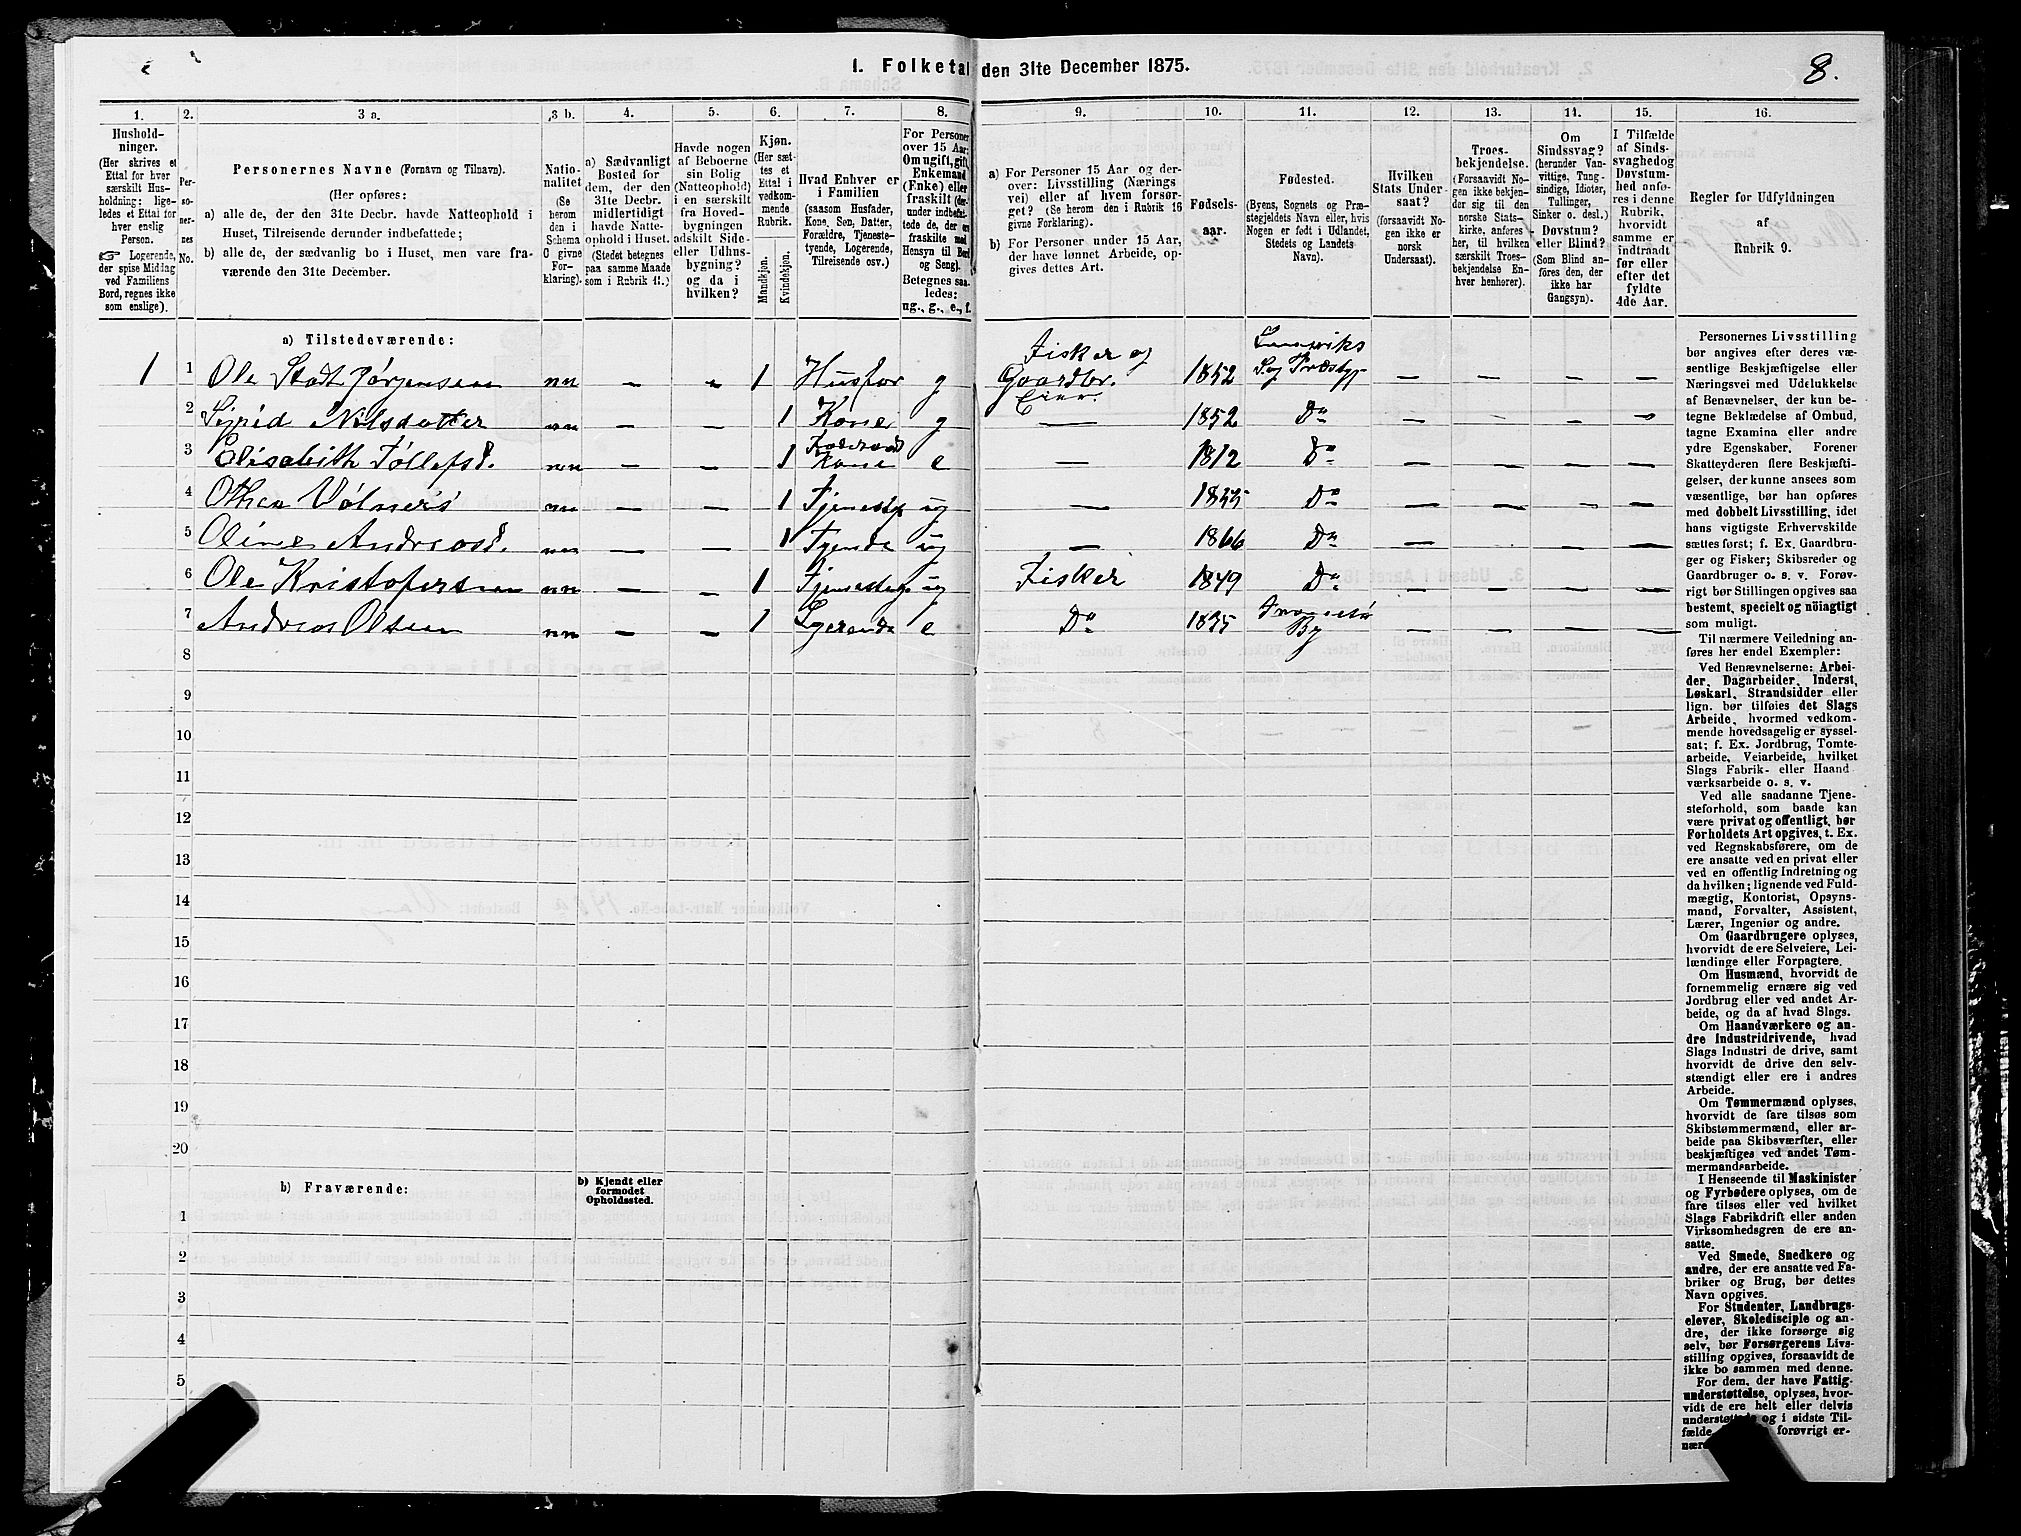 1. Folketal den 31te December 1875.
8.
1. 2. 3 a. 3 b. 4. 5. 6. 7. 8. 9. 10. 11. 12. 13. 14. 15. 16.
Hushold-
ninger.
(Her skrives et
Ettal for hver
særskilt Hus-
holdning; lige-
ledes et Ettal for
hver enslig
Person.
☞ Logerende,
der spise Middag
ved Familiens
Bord, regnes ikke
som enslige).
Per-
so-
ner-
nes
No.
Personernes Navne (Fornavn og Tilnavn).
(Her opføres:
a) alle de, der den 31te Decbr. havde Natteophold i
Huset, Tilreisende derunder indbefattede;
b) alle de, der sædvanlig bo i Huset, men vare fra-
værende den 31te December.
Natio-
nalitet
(Se
herom
den i
Schema
C givne
For-
klaring).
a) Sædvanligt
Bosted for
dem, der den
31te Decbr.
midlertidigt
havde Natte-
ophold i Huset.
(Stedet betegnes
paa samme Maade
som i Rubrik 11.)
Havde nogen
af Beboerne
sin Bolig
(Natteophold)
i en særskilt
fra Hoved-
bygningen
adskilt Side-
eller Udhus-
bygning?
og da i
hvilken?
Kjøn.
(Her sæt-
tes et
Ettal i
vedkom-
mende
Rubrik.
Mandkjøn.
Kvindekjøn.
Hvad Enhver er
i Familien
(saasom Husfader,
Kone, Søn, Datter,
Forældre, Tjeneste-
tyende, Logerende,
Tilreisende osv.)
For Personer
over 15 Aar:
Om ugift, gift,
Enkemand
(Enke) eller
fraskilt (der-
under indbefat-
tede de, der ere
fraskilte med
Hensyn til Bord
og Seng).
Betegnes saa-
ledes:
ug., g., e., f.
a) For Personer 15 Aar og der-
over: Livsstilling (Nærings
vei) eller af hvem forsør-
get? (Se herom den i Rubrik 16
givne Forklaring).
b) For Personer under 15 Aar,
der have lønnet Arbeide, op-
gives dettes Art.
Fødsels-
aar.
Fødested.
(Byens, Sognets og Præ-
stegjeldets Navn eller, hvis
Nogen er født i Udlandet,
Stedets og Landets
Navn).
Hvilken
Stats Under-
saat?
(forsaavidt No-
gen ikke er
norsk
Undersaat).
Troes-
bekjendelse.
(Forsaavidt No-
gen ikke bekjen-
der sig til den
norske Stats-
kirke, anføres
her, til hvilken
særskilt Troes-
bekjendelse En-
hver henhører).
Om
Sindssvag?
(herunder Van-
vittige, Tung-
sindige, Idioter,
Tullinger,
Sinker o. desl.)
Døvstum?
eller Blind?
(Som Blind an-
føres den, der
ikke har
Gangsyn).
I Tilfælde
af Sinds-
svaghed og
Døvstum-
hed anfø-
res i denne
Rubrik,
hvorvidt
samme er
indtraadt
før eller
efter det
fyldte
4de Aar.
Regler for Udfyldningen
af
Rubrik 9.
a) Tilstedeværende:
1 1 Ole Stadt Jørgensen nn – – 1 Husfar g Fisker og Gaardbr. Eier. 1852 S. og Præstgj – – – –
2 Sigrid Nilsdatter nn – – 1 Kone g – 1852 Do – – – –
3 Elisabith Tollefsd. nn – – 1 Kone e – 1812 Do – – – –
4 nn – – 1 Tjenestp ug – Do – – – –
5 Oline Andreasd. nn – – 1 Tyende ug – 1866 Do – – – –
6 Ole Kristofersen nn – – 1 Tjenestep ug Fisker 1849 Do – – – –
7 Andreas Olsen nn – – 1 e Do 1835 Tromsø By – – – –
8
9
10
11
12
13
14
15
16
17
18
19
20
b) Fraværende:
b) Kjendt eller
formodet
Opholdssted.
1
2
3
4
5
Personernes Livsstilling
bør angives efter deres væ-
sentlige Beskjæftigelse eller
Næringsvei med Udelukkelse
af Benævnelser, der kun be-
tegne Beklædelse af Ombud,
tagne Examina eller andre
ydre Egenskaber. Forener
Skatteyderen flere Beskjæfti-
gelser, der kunne ansees som
væsentlige, bør han opføres
med dobbelt Livsstilling, idet
hans vigtigste Erhvervskilde
sættes først; f. Ex. Gaardbru-
ger og Fisker; Skibsreder og
Gaardbruger o. s. v. Forøv-
rigt bør Stillingen opgives saa
bestemt, specielt og nöiagtigt
som muligt.
Til nærmere Veiledning an-
føres her endel Exempler:
Ved Benævnelserne: Arbei-
der, Dagarbeider, Inderst,
Løskarl, Strandsidder eller
lign. bør tilføies det Slags
Arbeide, hvormed vedkom-
mende hovedsagelig er syssel-
sat; f. Ex. Jordbrug, Tomte-
arbeide, Veiarbeide, hvilket
Slags Fabrik- eller Haand
værksarbeide o. s. v.
Ved alle saadanne Tjene-
steforhold, som baade kan
være privat og offentligt, bør
Forholdets Art opgives, t. Ex.
ved Regnskabsførere, om de
ere ansatte ved en privat eller
ved en offentlig Indretning og
da hvilken; lignende ved Fuld-
mægtig, Kontorist, Opsyns-
mand, Forvalter, Assistent,
Lærer, Ingeniør og andre.
Om Gaardbrugere oplyses,
hvorvidt de ere Selveiere, Lei-
lændinge eller Forpagtere.
Om Husmænd, hvorvidt de
fornemmelig ernære sig ved
Jordbrug eller ved andet Ar-
beide, og da af hvad Slags.
Om Haandværkere og an-
dre Industridrivende, hvad
Slags Industri de drive, samt
hvorvidt de drive den selv-
stændigt eller ere i andres
Arbeide.
Om Tømmermænd oplyses,
hvorvidt de fare tilsøs som
Skibstømmermænd, eller ar-
beide paa Skibsværfter, eller
beskjæftiges ved andet Tøm-
mermandsarbeide.
I Henseende til Maskinister
og Fyrbødere oplyses, om de
fare tilsøs eller ved hvilket
Slags Fabrikdrift eller anden
Virksomhedsgren de ere an-
satte.
Ved Smede, Snedkere og
andre, der ere ansatte ved Fa-
briker og Brug, bør dettes
Navn opgives.
For Studenter, Landbrugs-
elever, Skoledisciple og an-
dre, der ikke forsørge sig
selv, bør Forsørgerens Livs-
stilling opgives, forsaavidt de
ikke bo sammen med denne.
For dem, der have Fattig-
understøttelse, oplyses, hvor-
vidt de ere helt eller delvis
understøttede og i sidste Til-
fælde forøvrigt er-